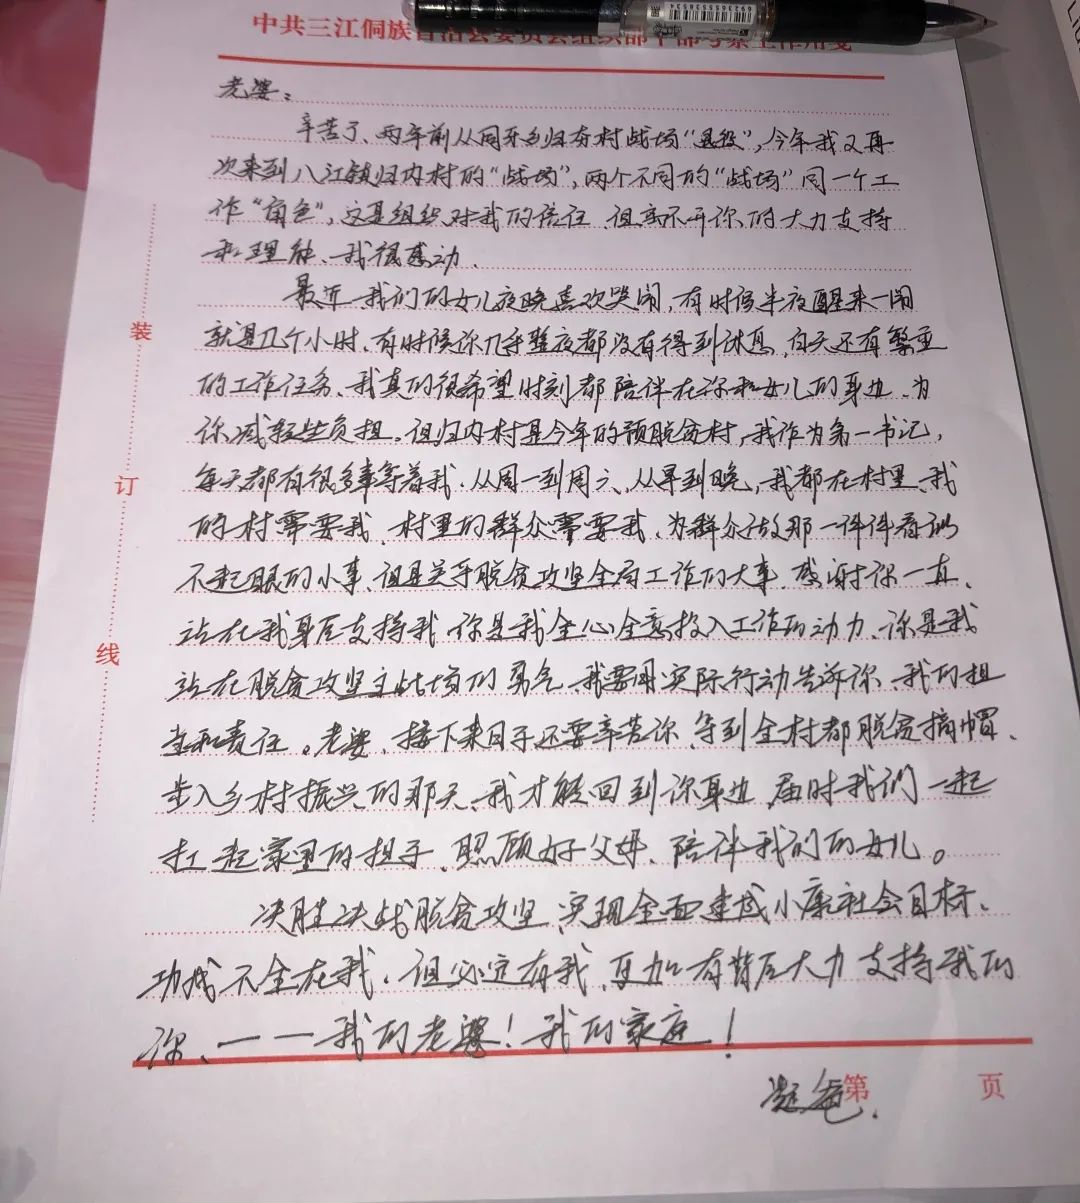 中共三江侗族自治县委员会组织部干部考察工作用笺
老婆：
辛苦了、两年前从同乐乡归夯村战场“退役”，今年我又再
次来到八江镇归内村的“战场”，两个不同的“战场”同一个工
作“角色”，这是组织对我的信任、但离不开你的大力支持
和理解、我很感动.
最近、我们的女儿夜晚喜欢哭闹，有时候半夜醒来一闹
就是几个小时、有时候你几乎整夜都没有得到休息，白天还有繁重
的工作任务、我真的很希望时刻都陪伴在你和女儿的身边、为
你减轻些负担。但归内村是今年的预脱贫村，我作为第一书记，
每天都有很多事等着我.从周一到周六、从早到晚，我都在村里、我
的村需要我、村里的群众需要我、为群众做那一件件看似
不起眼的小事、但是关乎脱贫攻坚全局工作的大事.感谢你一直、
站在我身后支持我、你是我全心全意投入工作的动力、你是我
站在脱贫攻坚主战场的勇气、我要用实际行动告诉你、我的担
当和责任。老婆、接下来日子还要辛苦你、等到全村都脱贫摘帽、
步入乡村振兴的那天、我才能回到你身边、届时我们一起
扛起家里的担子、照顾好父母、陪伴我们的女儿。
决胜决战脱贫攻坚、实现全面建成小康社会目标、
功成不全在我.但必定有我、更加有背后大力支持我的
你、——我的老婆！我的家庭！
爸.
第 页
装
订
线